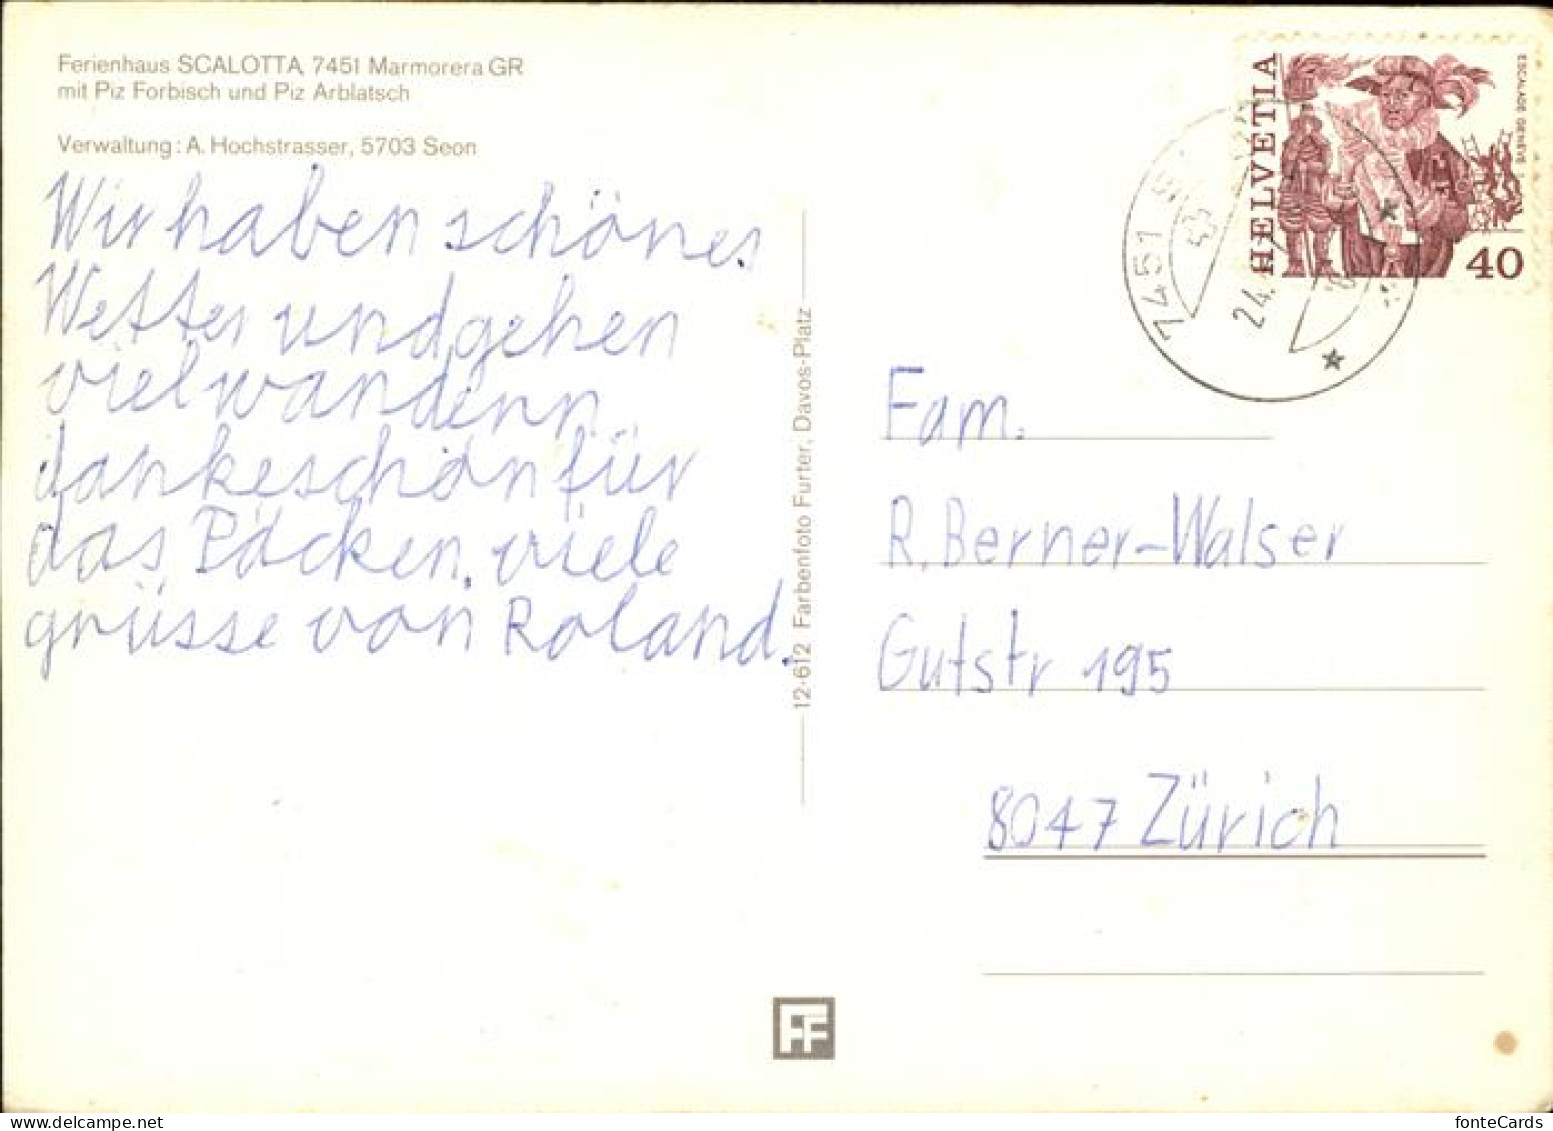 Ferienhaus SCALOTTA, 7451 Marmorera GR
mit Piz Forbisch und Piz Arblatsch
Verwaltung: A. Hochstrasser, 5703 Seon
Wir haben schönes
Wetter und gehen
viel wandern
dankeschön für
das Päcken. viele
grüsse von Roland.
12-612 Farbenfoto Furter, Davos-Platz
HELVETIA
ESCALADE GENÈVE
40
7451
24.
Fam.
R. Berner-Walser
Gutstr 195
8047 Zürich
FF
fonteCards